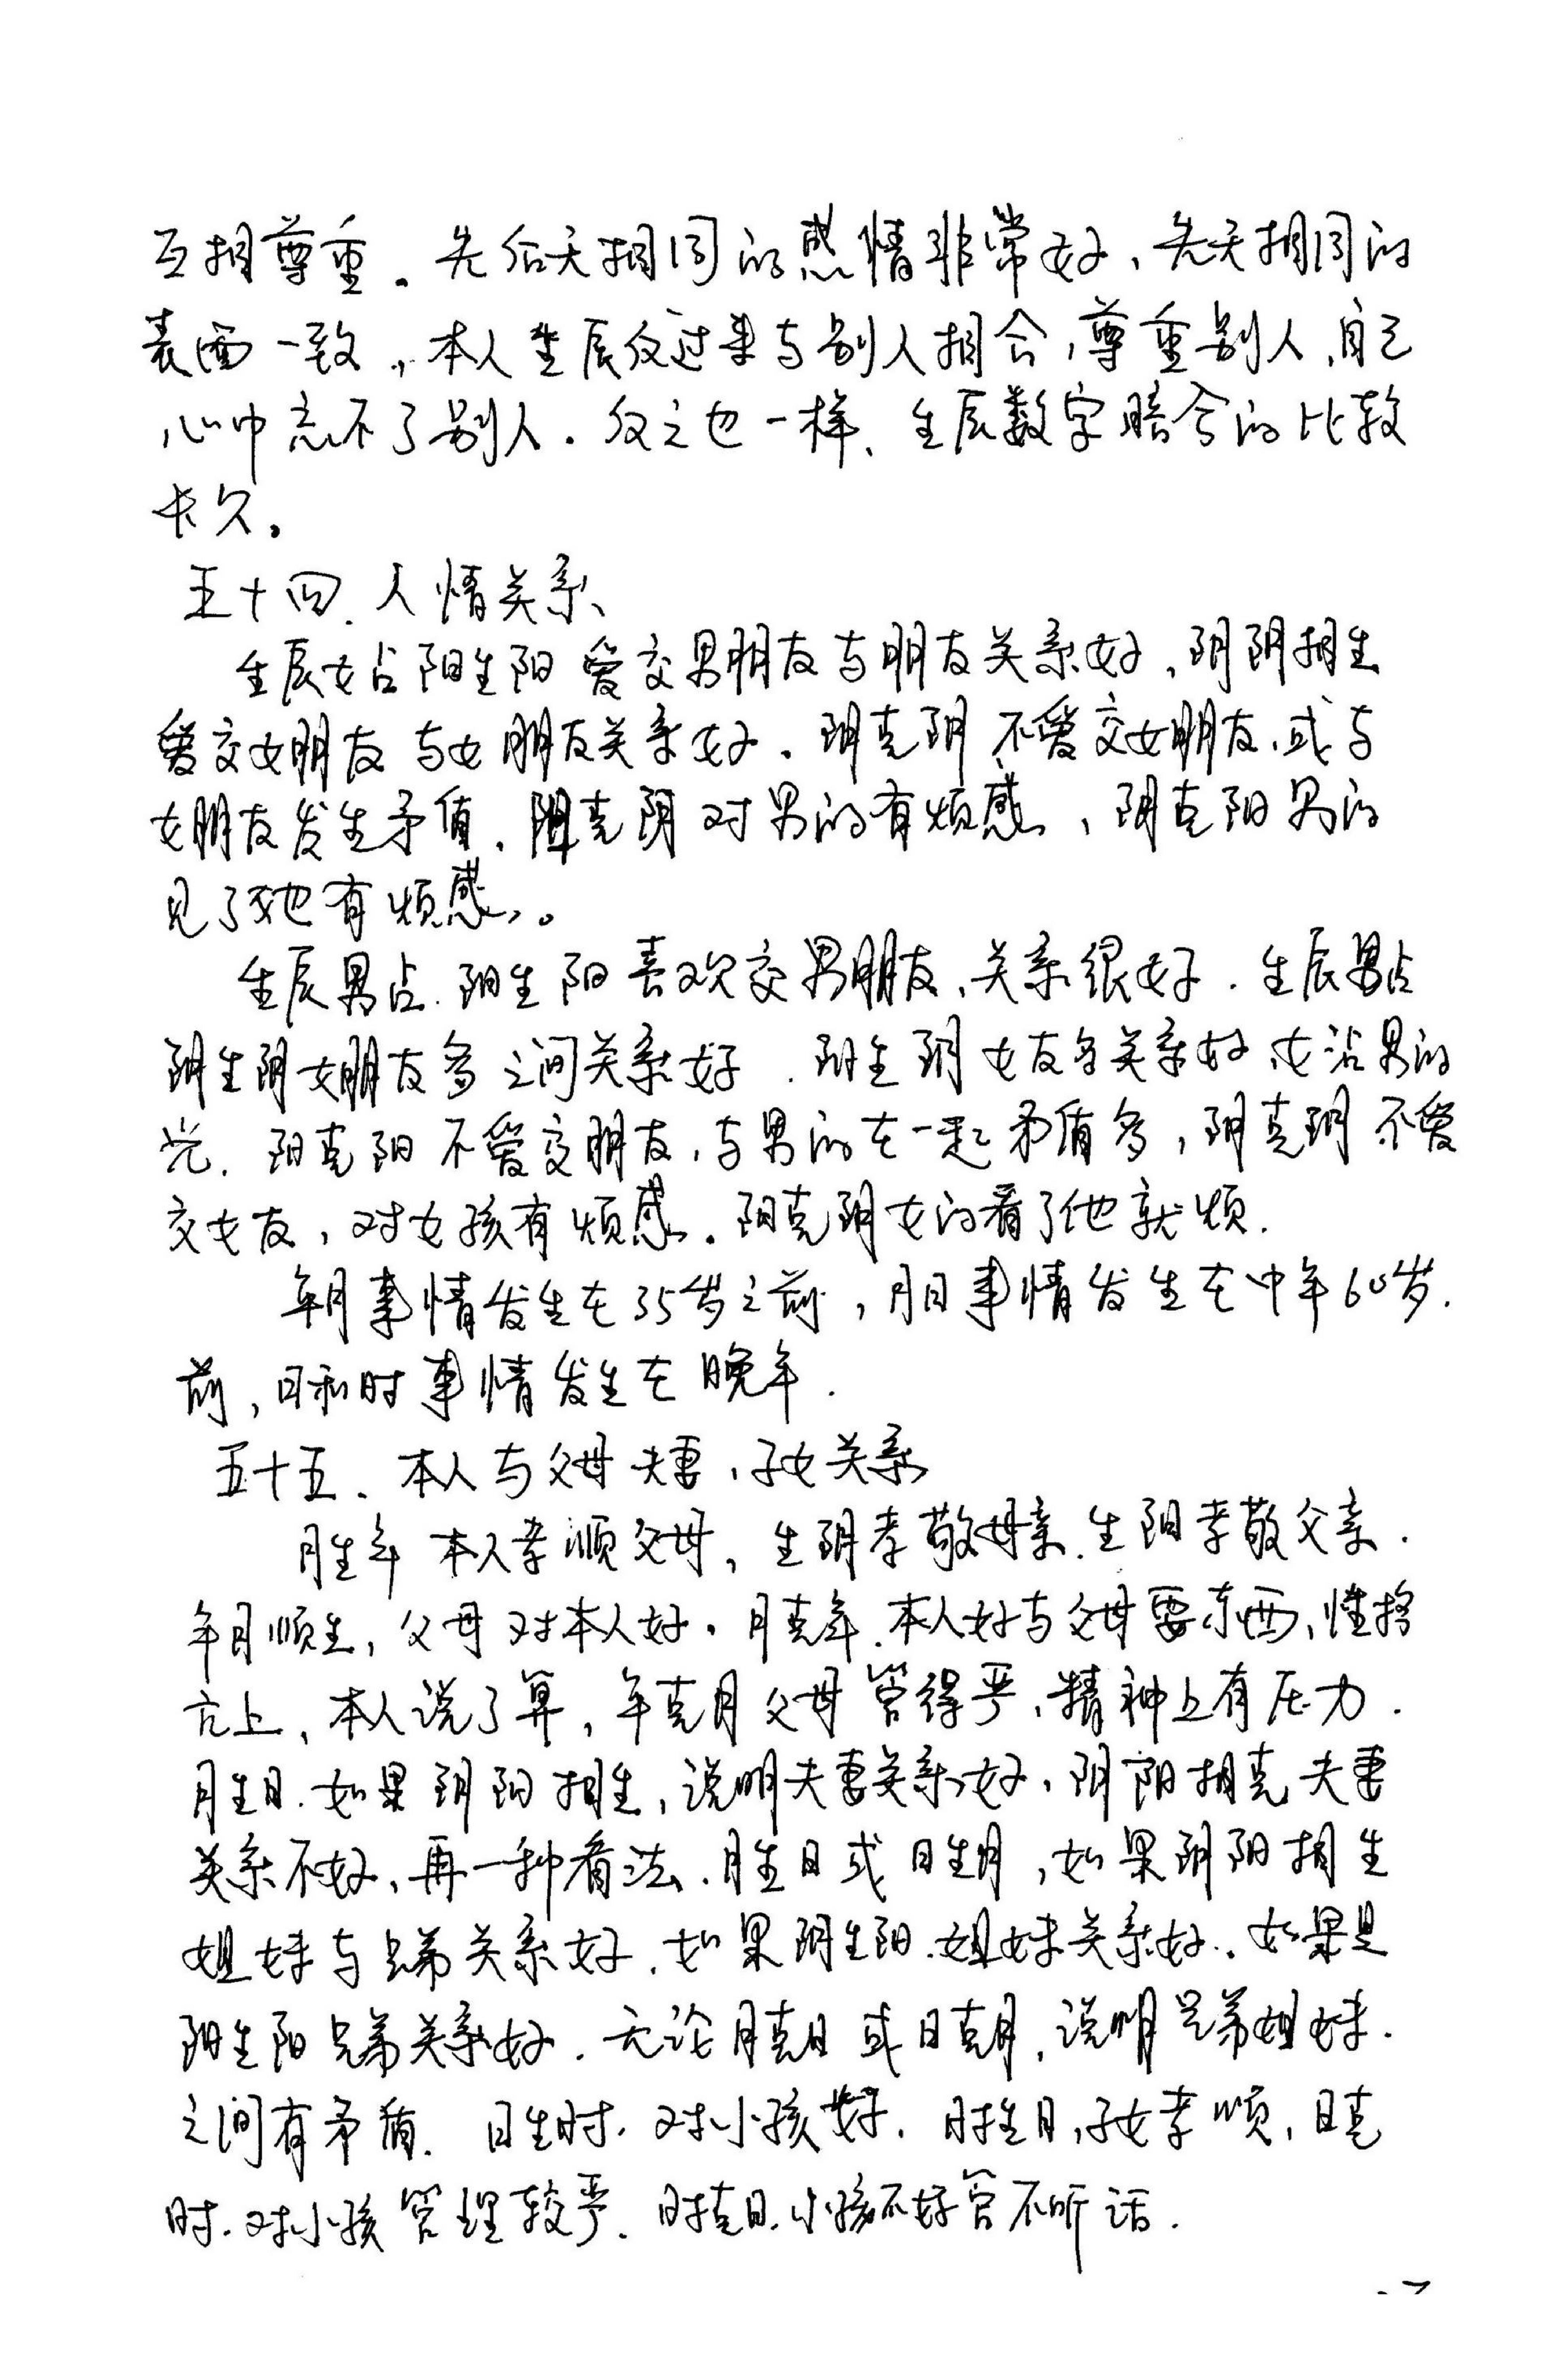 互相尊重。先后天相同的感情非常好、先天相同的
表面一致,本人生辰反过来与别人相合,尊重别人,自己
心中忘不了别人.反之也一样、生辰数字暗合的比较
长久。
五十四.人情关系、
生辰女占阳生阳爱交男朋友与朋友关系好,阴阴相生
爱交女朋友与女朋友关系好.阴克阴不爱交女朋友,或与
女朋友发生矛盾.阳克阴对男的有烦感、阴克阳男的
见了她有烦感。
生辰男占.阳生阳喜欢交男朋友、关系很好.生辰男占
阴生阴女朋友多之间关系好.阳生阴女友多关系好,女沾男的
光.阳克阳不爱交朋友,与男的在一起矛盾多,阴克阴不爱
交女友,对女孩有烦感.阳克阴女的看了他就烦.
年月事情发生在35岁之前,月日事情发生在中年60岁.
前,日和时事情发生在晚年.
五十五、本人与父母夫妻、子女关系
月生年本人孝顺父母,生阴孝敬母亲.生阳孝敬父亲.
年月顺生,父母对本人好.月克年.本人好与父母要东西,性格
亢上、本人说了算,年克月父母管得严、精神上有压力.
月生日.如果阴阳相生,说明夫妻关系好、阴阳相克夫妻
关系不好、再一种看法.月生日或日生月,如果阴阳相生
姐妹与兄弟关系好.如果阴生阳.姐妹关系好.如果是
阳生阳兄弟关系好.无论月克日或日克月,说明兄弟姐妹.
之间有矛盾.日生时.对小孩好.时生日,子女孝顺,日克
时.对小孩管理较严.时克日.小孩不好管不听话.